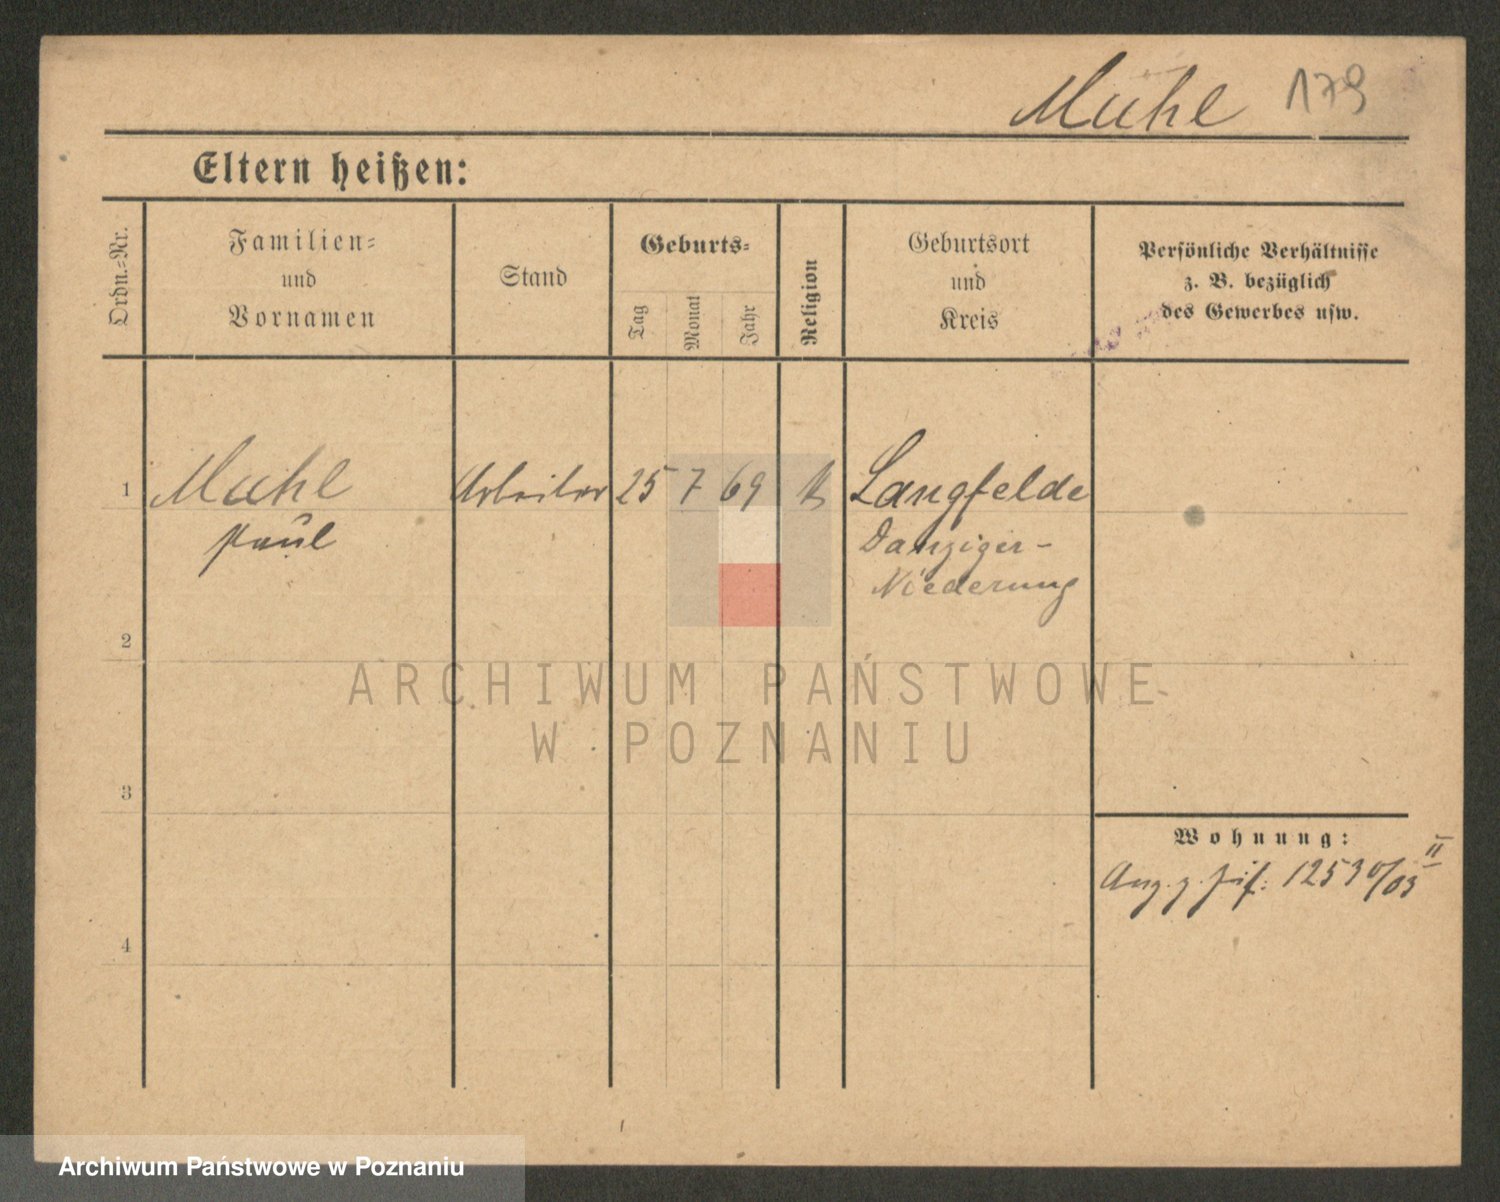 Muhl 179
Eltern heißen:
Ordn.-Nr.
Familien-
und
Vornamen
Stand
Geburts-
Tag
Monat
Jahr
Religion
Geburtsort
und
Kreis
Persönliche Verhältnisse
z. B. bezüglich
des Gewerbes usw.
1 Muhl Arbeiter 25 7 69 Langfelde
Paul Danziger-
Niederung
2
3
4
Wohnung:
1253 /03 II
ARCHIWUM PAŃSTWOWE
W POZNANIU
Archiwum Państwowe w Poznaniu